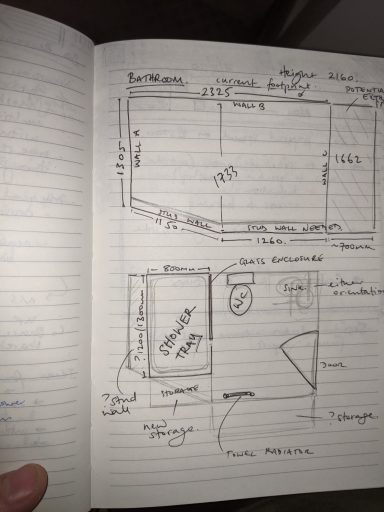 Height 2160.
BATHROOM. current footprint
2325
POTENTIAL
WALL B
1305
WALL A
1733
WALL C
1662
STUD WALL
1150.
STUD WALL NEEDED
1260.
~700mm
GLASS ENCLOSURE
800mm
?1200/1300mm
SHOWER
TRAY
WC
SINK
either
orientation
DOOR
? stud
wall
STORAGE
new
storage.
? storage.
TOWEL RADIATOR